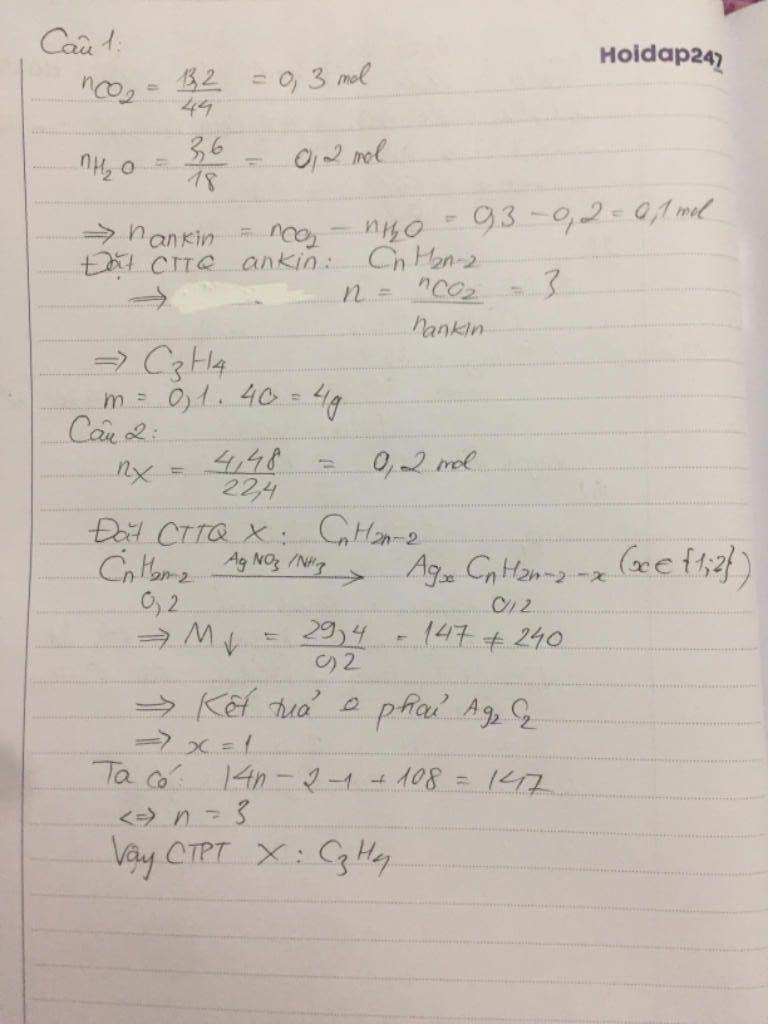 Câu 1:
Hoidap247
nCO2 = 13,2/44 = 0,3 mol
nH2O = 3,6/18 = 0,2 mol
=> nankin = nCO2 - nH2O = 0,3 - 0,2 = 0,1 mol
Đặt CTTQ ankin: CnH2n-2
=> n = nCO2/nankin = 3
=> C3H4
m = 0,1 . 40 = 4g
Câu 2:
nX = 4,48/22,4 = 0,2 mol
Đặt CTTQ X: CnH2n-2
CnH2n-2 AgNO3/NH3 → AgxCnH2n-2-x (x ∈ {1;2})
0,2 0,2
=> M↓ = 29,4/0,2 = 147 ≠ 240
=> Kết tuả o phaỉ Ag2C2
=> x = 1
Ta có: 14n - 2 - 1 + 108 = 147
<=> n = 3
Vậy CTPT X: C3H4